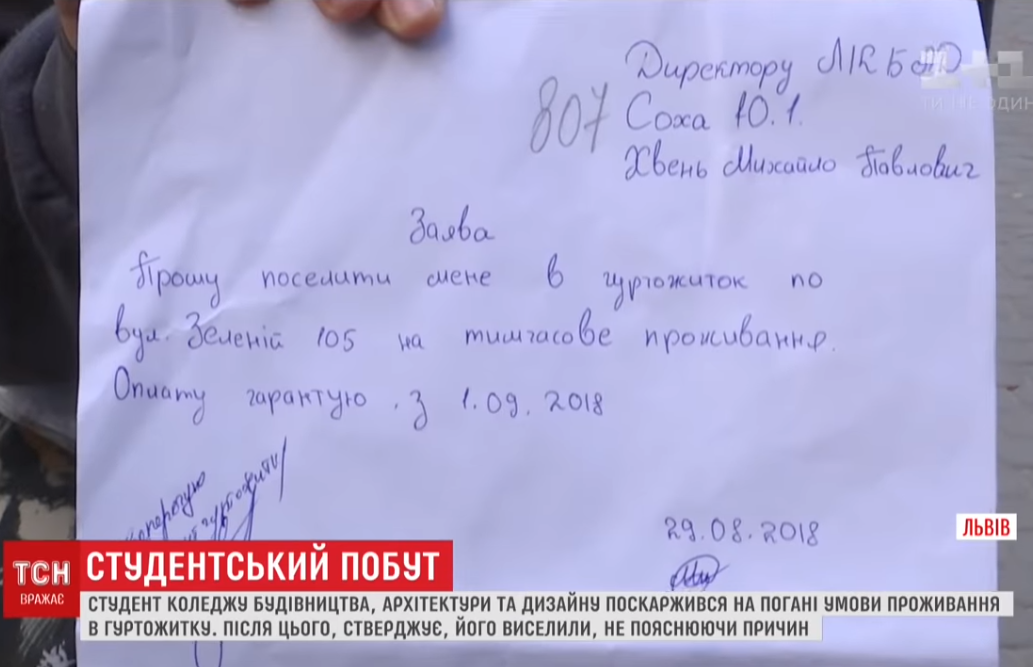 Директору ЛКБАД
807
Соха Ю.І.
Хвень Михайло Павлович
Заява
Прошу поселити мене в гуртожиток по
вул. Зеленій 105 на тимчасове проживання.
Оплату гарантую. З 1.09.2018
гуртожиту
29.08.2018
ЛЬВІВ
ТСН
ВРАЖАЄ
СТУДЕНТСЬКИЙ ПОБУТ
СТУДЕНТ КОЛЕДЖУ БУДІВНИЦТВА, АРХІТЕКТУРИ ТА ДИЗАЙНУ ПОСКАРЖИВСЯ НА ПОГАНІ УМОВИ ПРОЖИВАННЯ
В ГУРТОЖИТКУ. ПІСЛЯ ЦЬОГО, СТВЕРДЖУЄ, ЙОГО ВИСЕЛИЛИ, НЕ ПОЯСНЮЮЧИ ПРИЧИН